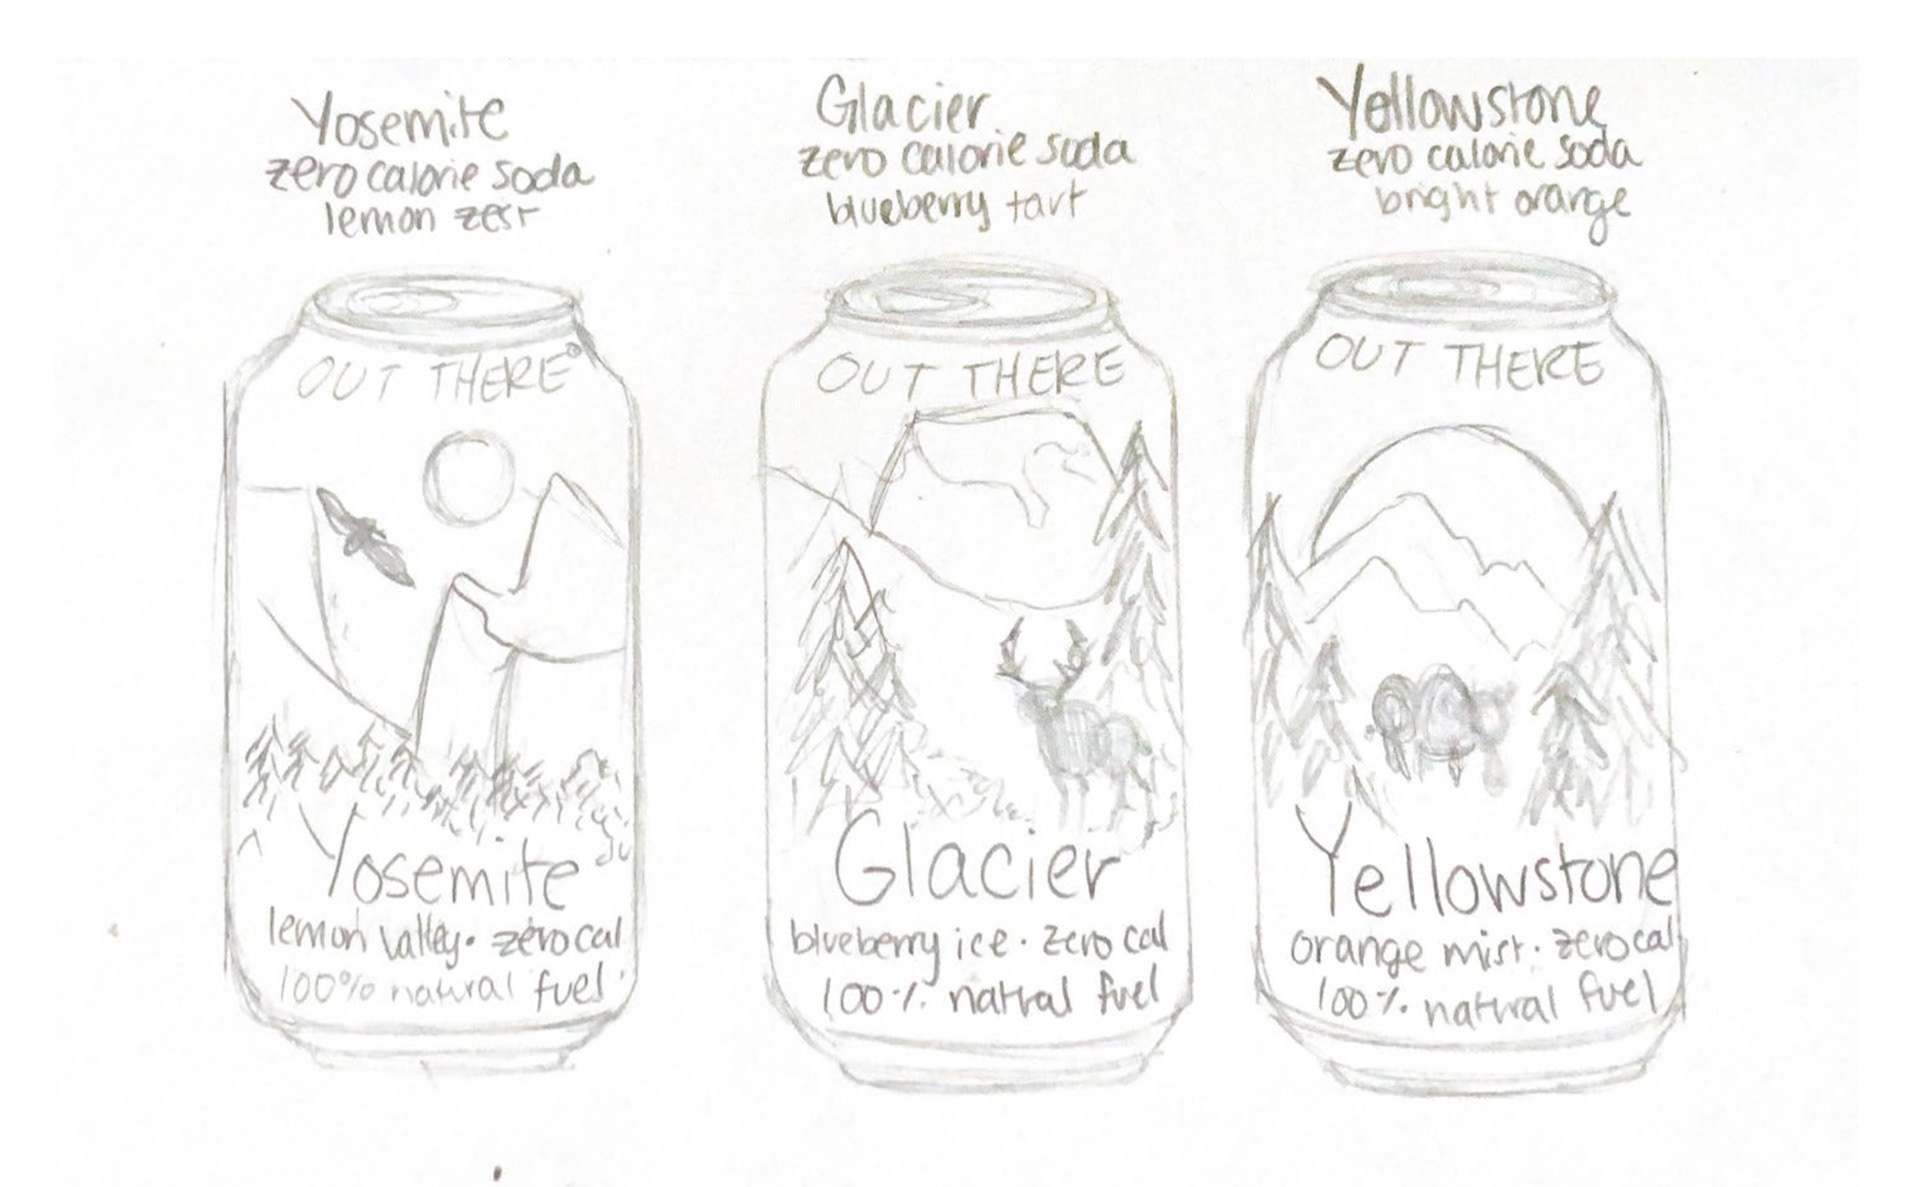 Yosemite
zero calorie soda
lemon zest
OUT THERE®
Yosemite
lemon valley · zero cal
100% natural fuel
Glacier
zero calorie soda
blueberry tart
OUT THERE
Glacier
blueberry ice · zero cal
100% natural fuel
Yellowstone
zero calorie soda
bright orange
OUT THERE
Yellowstone
orange mist · zero cal
100% natural fuel